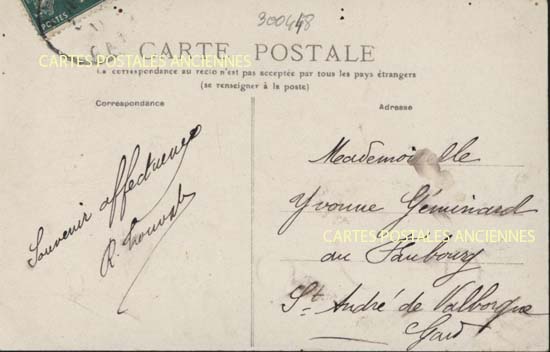 300448
CARTE POSTALE
CARTES POSTALES ANCIENNES
La correspondance au recto n'est pas acceptée par tous les pays étrangers
(se renseigner à la poste)
Correspondance
Souvenir affectueux
R.
Adresse
Mademoiselle
Yvonne Géminard
CARTES POSTALES ANCIENNES
au Faubourg
St André de Valborgne
Gard